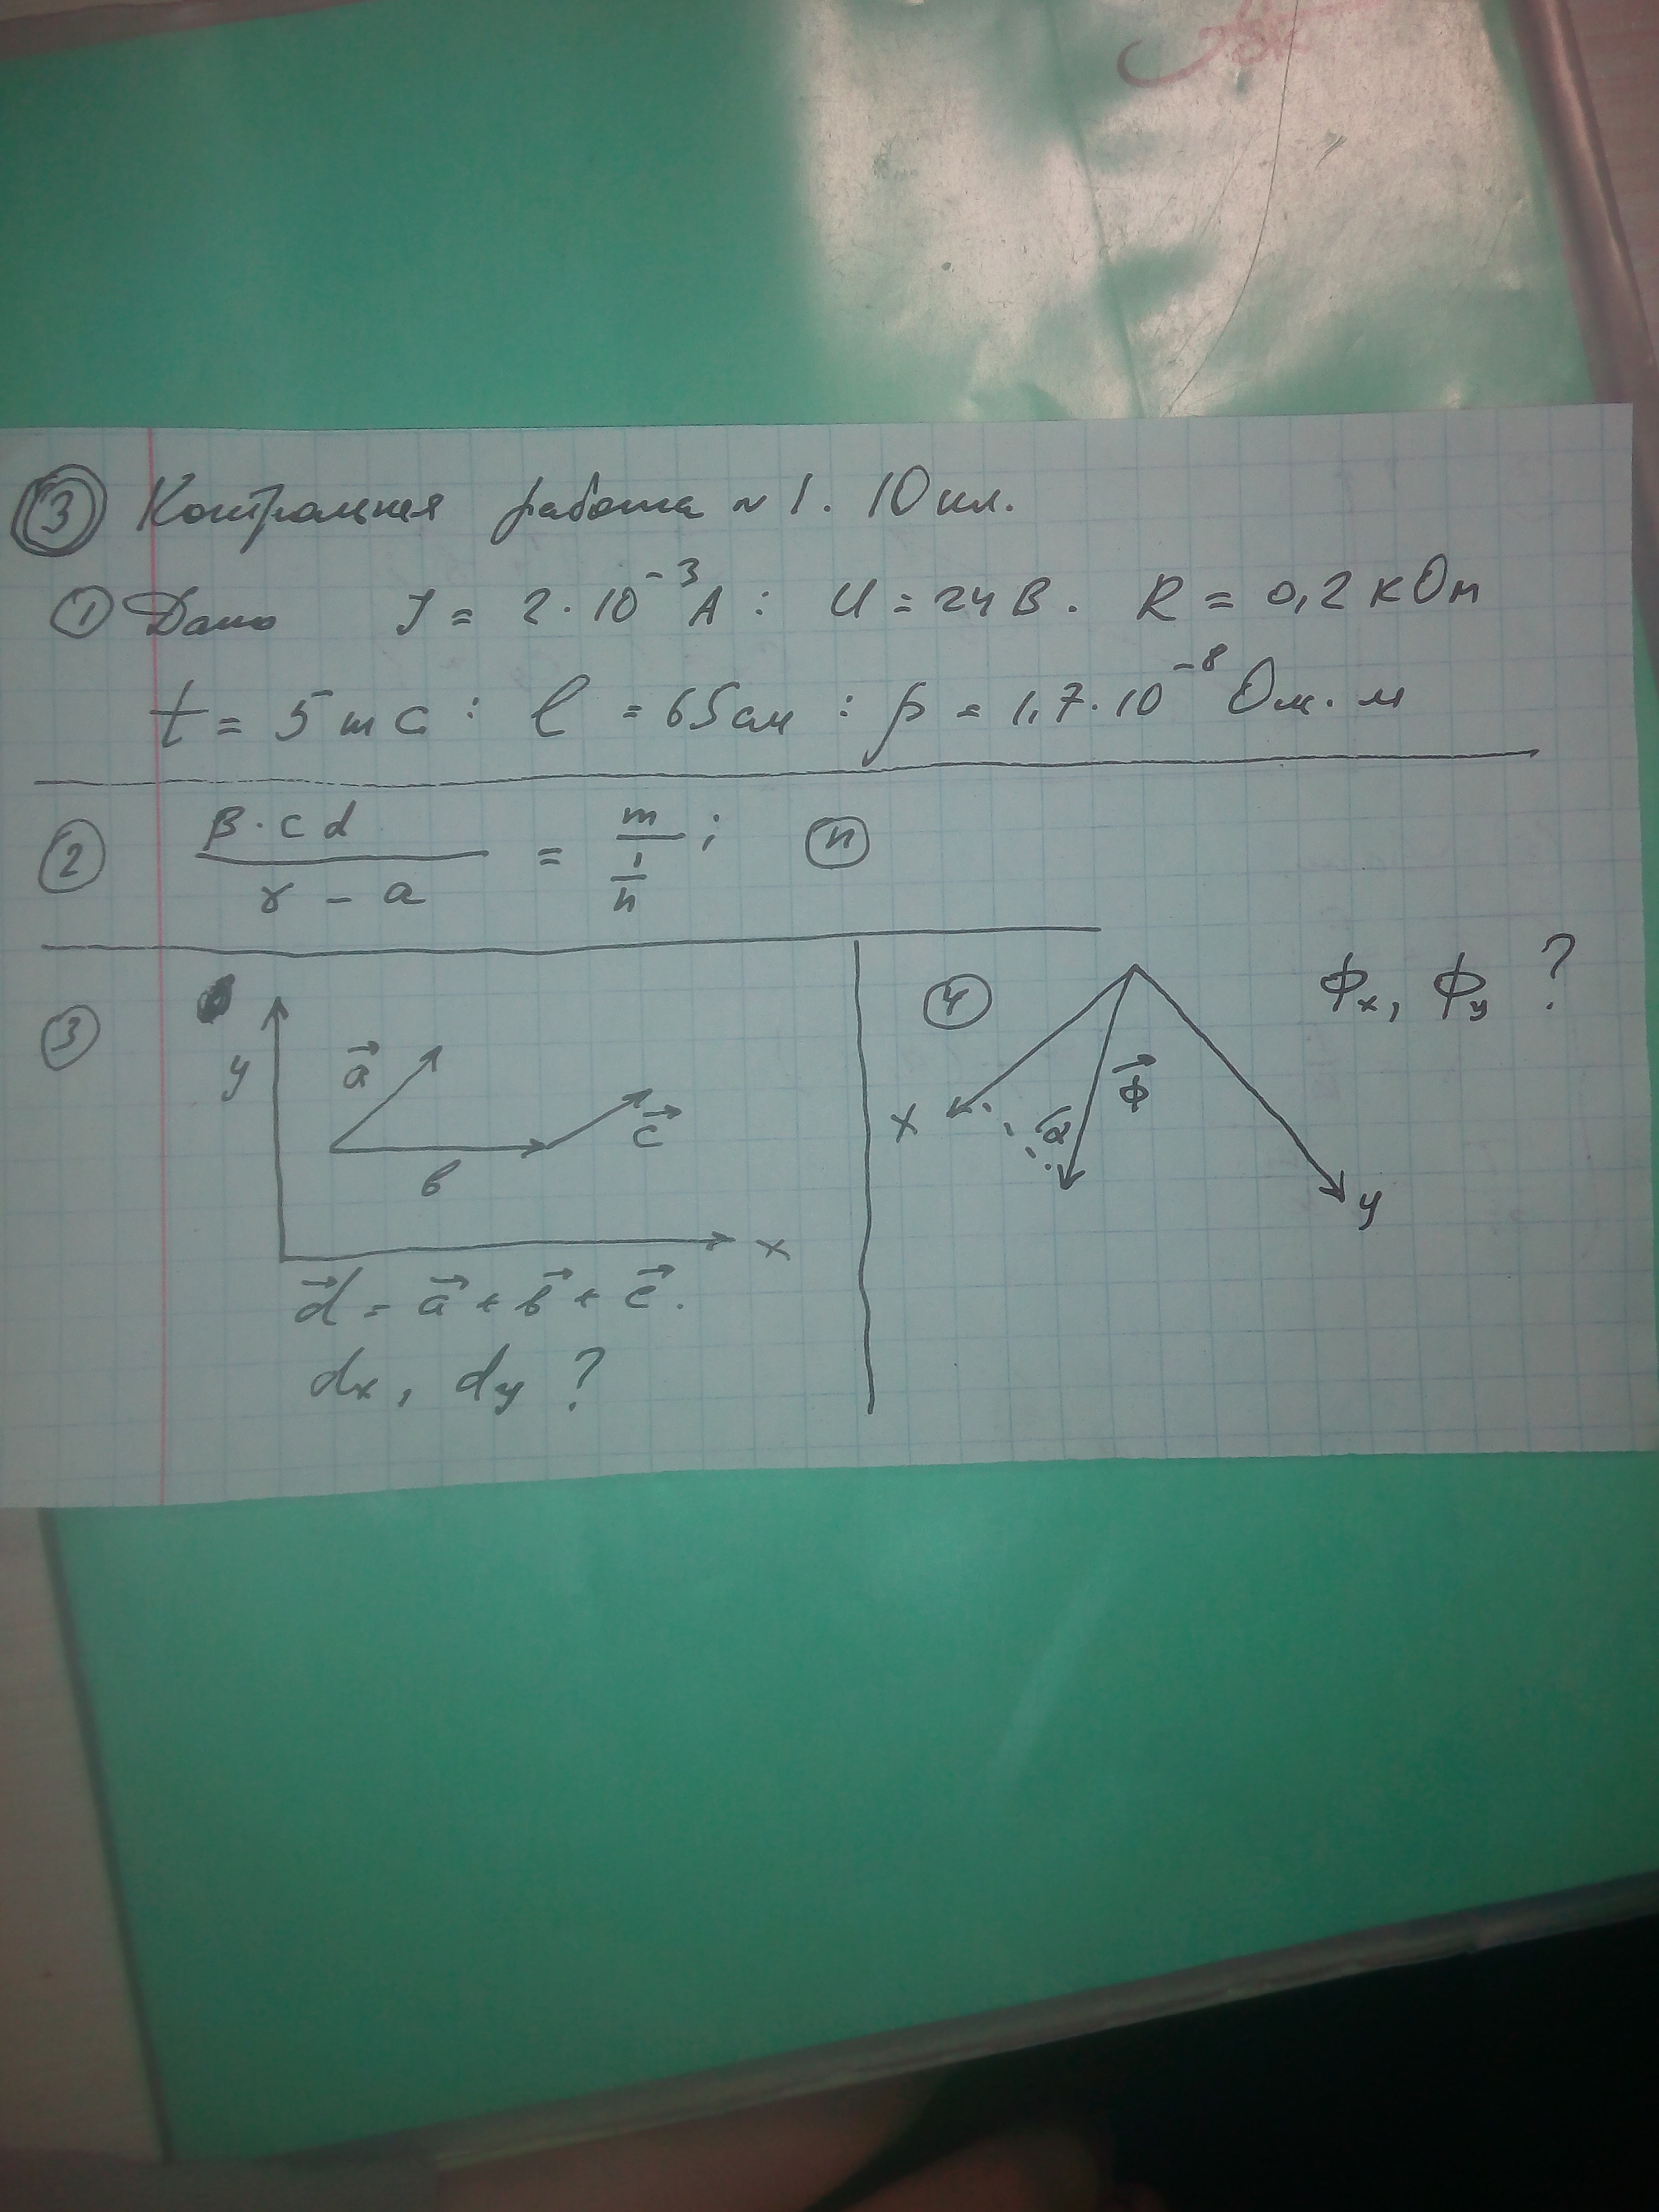 ③ Контрольная работа № 1. 10 кл.
① Дано J = 2·10⁻³ А : U = 24 В. R = 0,2 кОм
t = 5 mc : l = 65 см : ρ = 1,7·10⁻⁸ Ом·м
② β·cd / (γ - a) = m / (1/n) ; ⓝ
③ y a⃗ b c⃗ x
d⃗ = a⃗ + b⃗ + c⃗.
dx, dy ?
④ Фx, Фy ?
x α Ф⃗ y